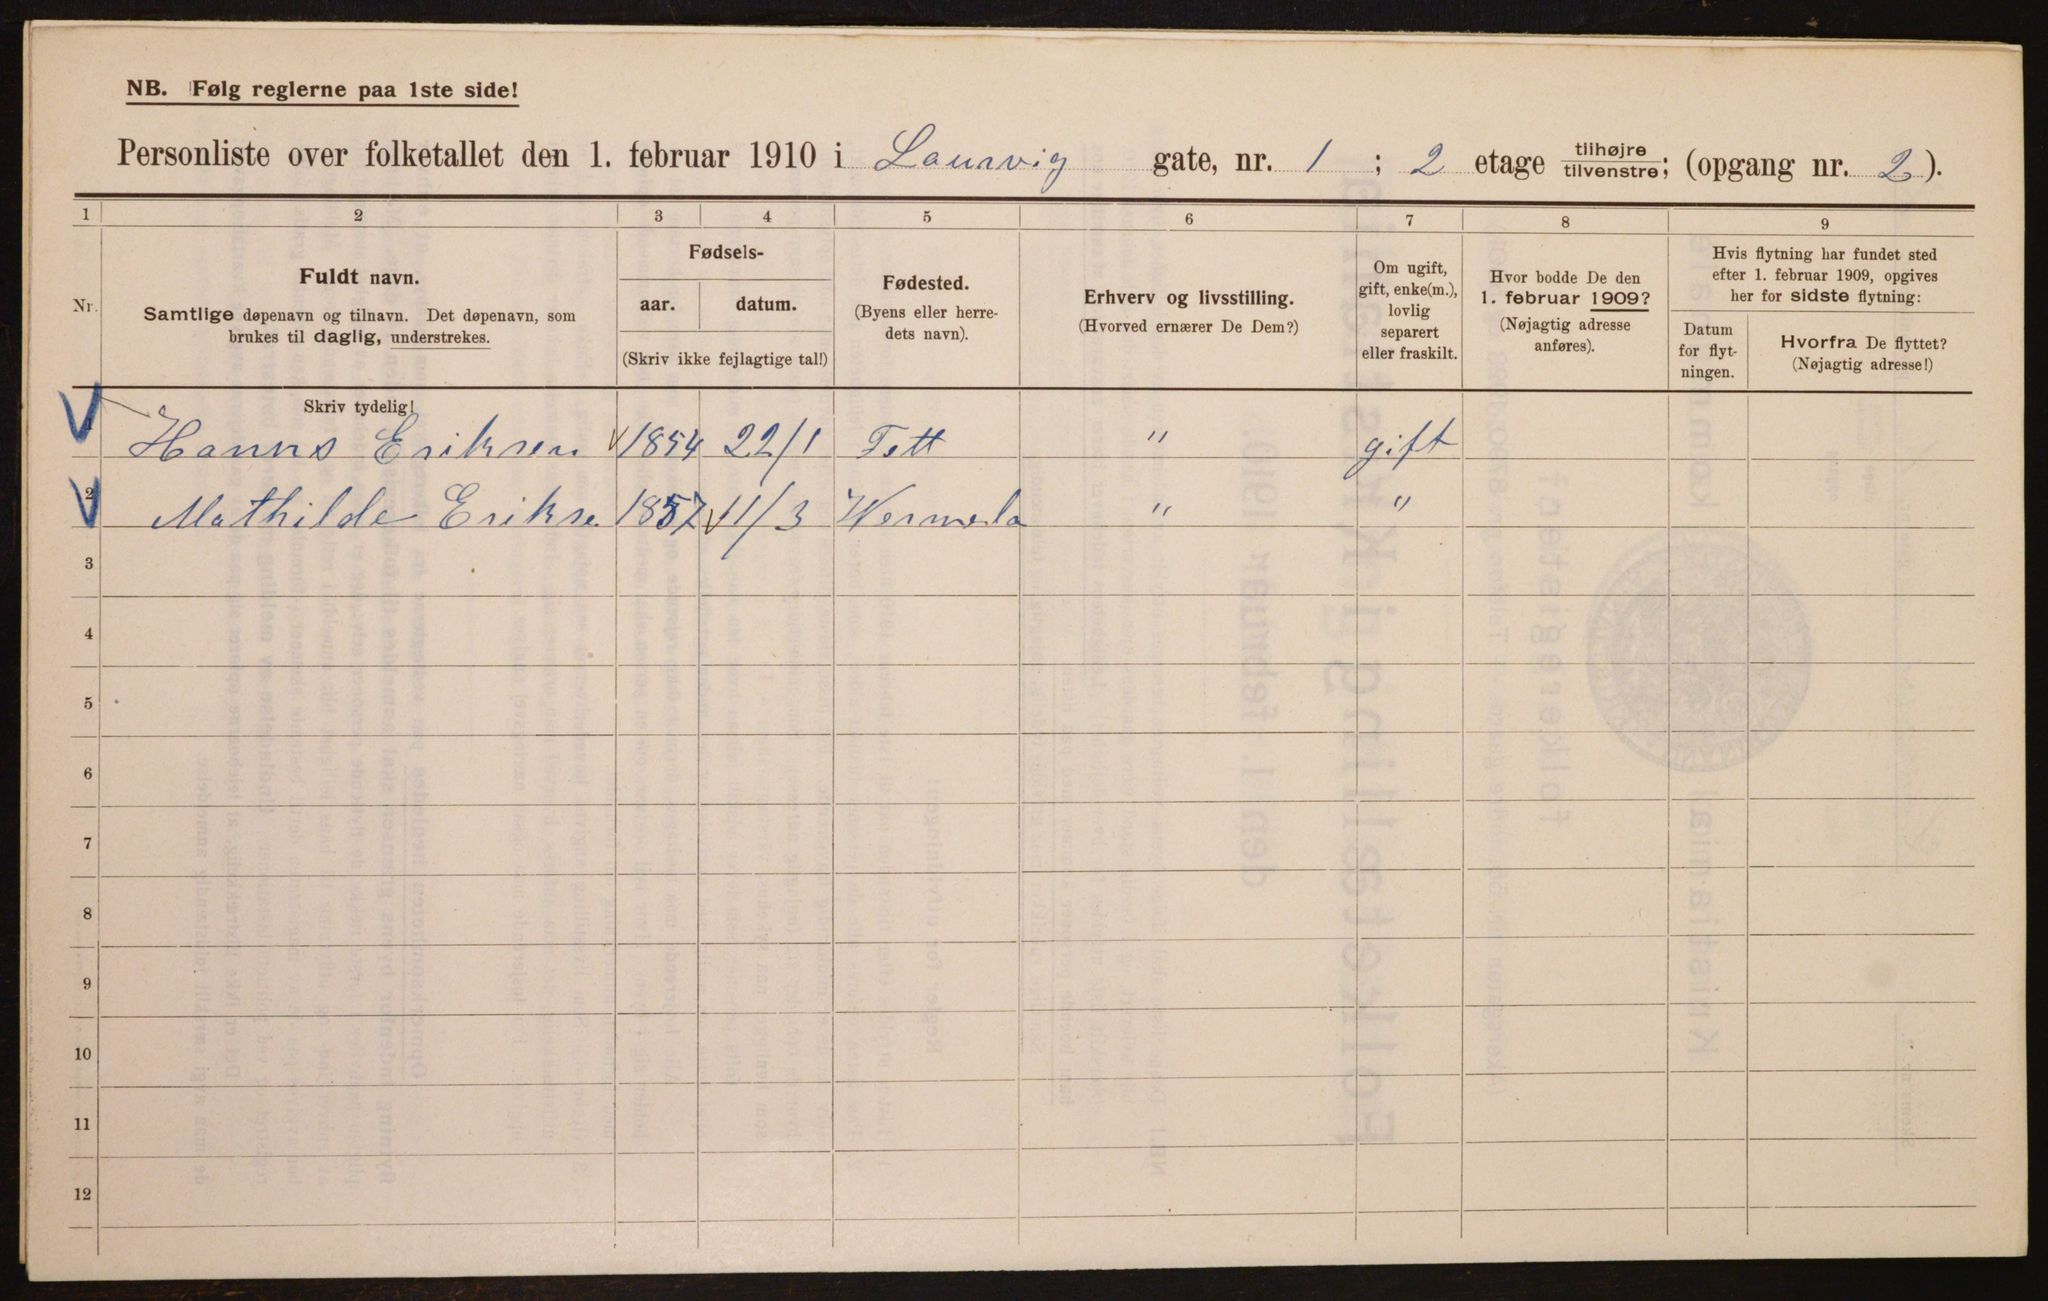 NB. Følg reglerne paa 1ste side!
Personliste over folketallet den 1. februar 1910 i Laurvig gate, nr. 1 ; 2 etage tilhøjre/tilvenstre; (opgang nr. 2).
1 2 3 4 5 6 7 8 9
Nr.
Fuldt navn.
Samtlige døpenavn og tilnavn. Det døpenavn, som
brukes til daglig, understrekes.
Fødsels-
aar. datum.
(Skriv ikke fejlagtige tal!)
Fødested.
(Byens eller herre-
dets navn).
Erhverv og livsstilling.
(Hvorved ernærer De Dem?)
Om ugift,
gift, enke(m.),
lovlig
separert
eller fraskilt.
Hvor bodde De den
1. februar 1909?
(Nøjagtig adresse
anføres).
Hvis flytning har fundet sted
efter 1. februar 1909, opgives
her for sidste flytning:
Datum
for flyt-
ningen.
Hvorfra De flyttet?
(Nøjagtig adresse!)
Skriv tydelig!
1 Hanns Eriksen 1854 22/1 Tett " gift
2 Mathilde Erikse 1857 11/3 Wermela " "
3
4
5
6
7
8
9
10
11
12